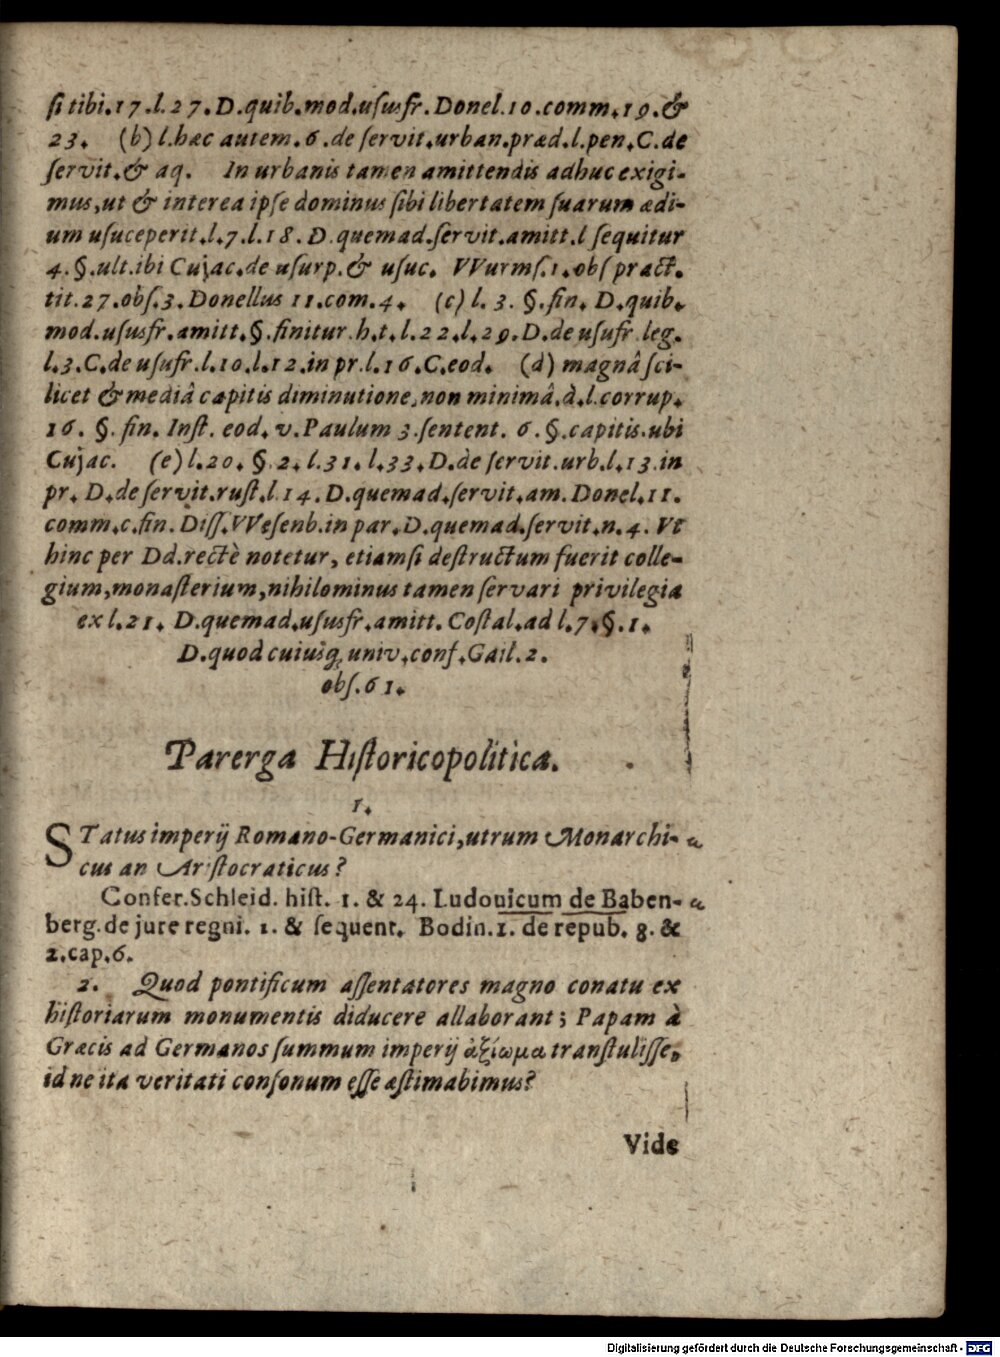 ſi tibi.17.l.27.D.quib.mod.uſusfr.Donel.10.comm.19.&
23. (b) l.hæc autem.6.de ſervit.urban.præd.l.pen.C.de
ſervit.& aq. In urbanis tamen amittendis adhuc exigi-
mus,ut & interea ipſe dominus ſibi libertatem ſuarum ædi-
um uſuceperit.l.7.l.18.D.quemad.ſervit.amitt.l ſequitur
4.§.ult.ibi Cujac.de uſurp.& uſuc. VVurmſ.1.obſ pract.
tit.27.obſ.3.Donellus 11.com.4. (c) l. 3. §.fin. D.quib.
mod.uſusfr.amitt.§.finitur.h.t.l.22.l.29.D.de uſufr leg.
l.3.C.de uſufr.l.10.l.12.in pr.l.16.C.eod. (d) magnâ ſci-
licet & mediâ capitis diminutione,non minimâ.d.l.corrup.
16. §. fin. Inſt. eod. v.Paulum 3.ſentent. 6.§.capitis.ubi
Cujac. (e) l.20. §.2.l.31.l.33.D.de ſervit.urb.l.13.in
pr. D.de ſervit.ruſt.l 14.D.quemad.ſervit.am.Donel.11.
comm.c.fin. Diſſ.VVeſenb.in par.D.quemad.ſervit.n.4. Vt
hinc per Dd.rectè notetur, etiamſi deſtructum fuerit colle-
gium,monaſterium,nihilominus tamen ſervari privilegia
ex l.21. D.quemad.uſusfr.amitt. Coſtal.ad l.7.§.1.
D.quod cuiusq; univ.conſ.Gail.2.
obſ.61.
Parerga Hiſtoricopolitica.
1.
STatus imperij Romano-Germanici,utrum Monarchi-
cus an Ariſtocraticus?
Confer.Schleid. hiſt. 1. & 24. Ludouicum de Baben-
berg.de jure regni. 1. & ſequent. Bodin.1. de repub. 8. &
2.cap.6.
2. Quod pontificum aſſentatores magno conatu ex
hiſtoriarum monumentis diducere allaborant; Papam à
Græcis ad Germanos ſummum imperij ἀξίωμα tranſtuliſſe,
id ne ita veritati conſonum eſſe æſtimabimus?
Vide
Digitalisierung gefördert durch die Deutsche Forschungsgemeinschaft - DFG